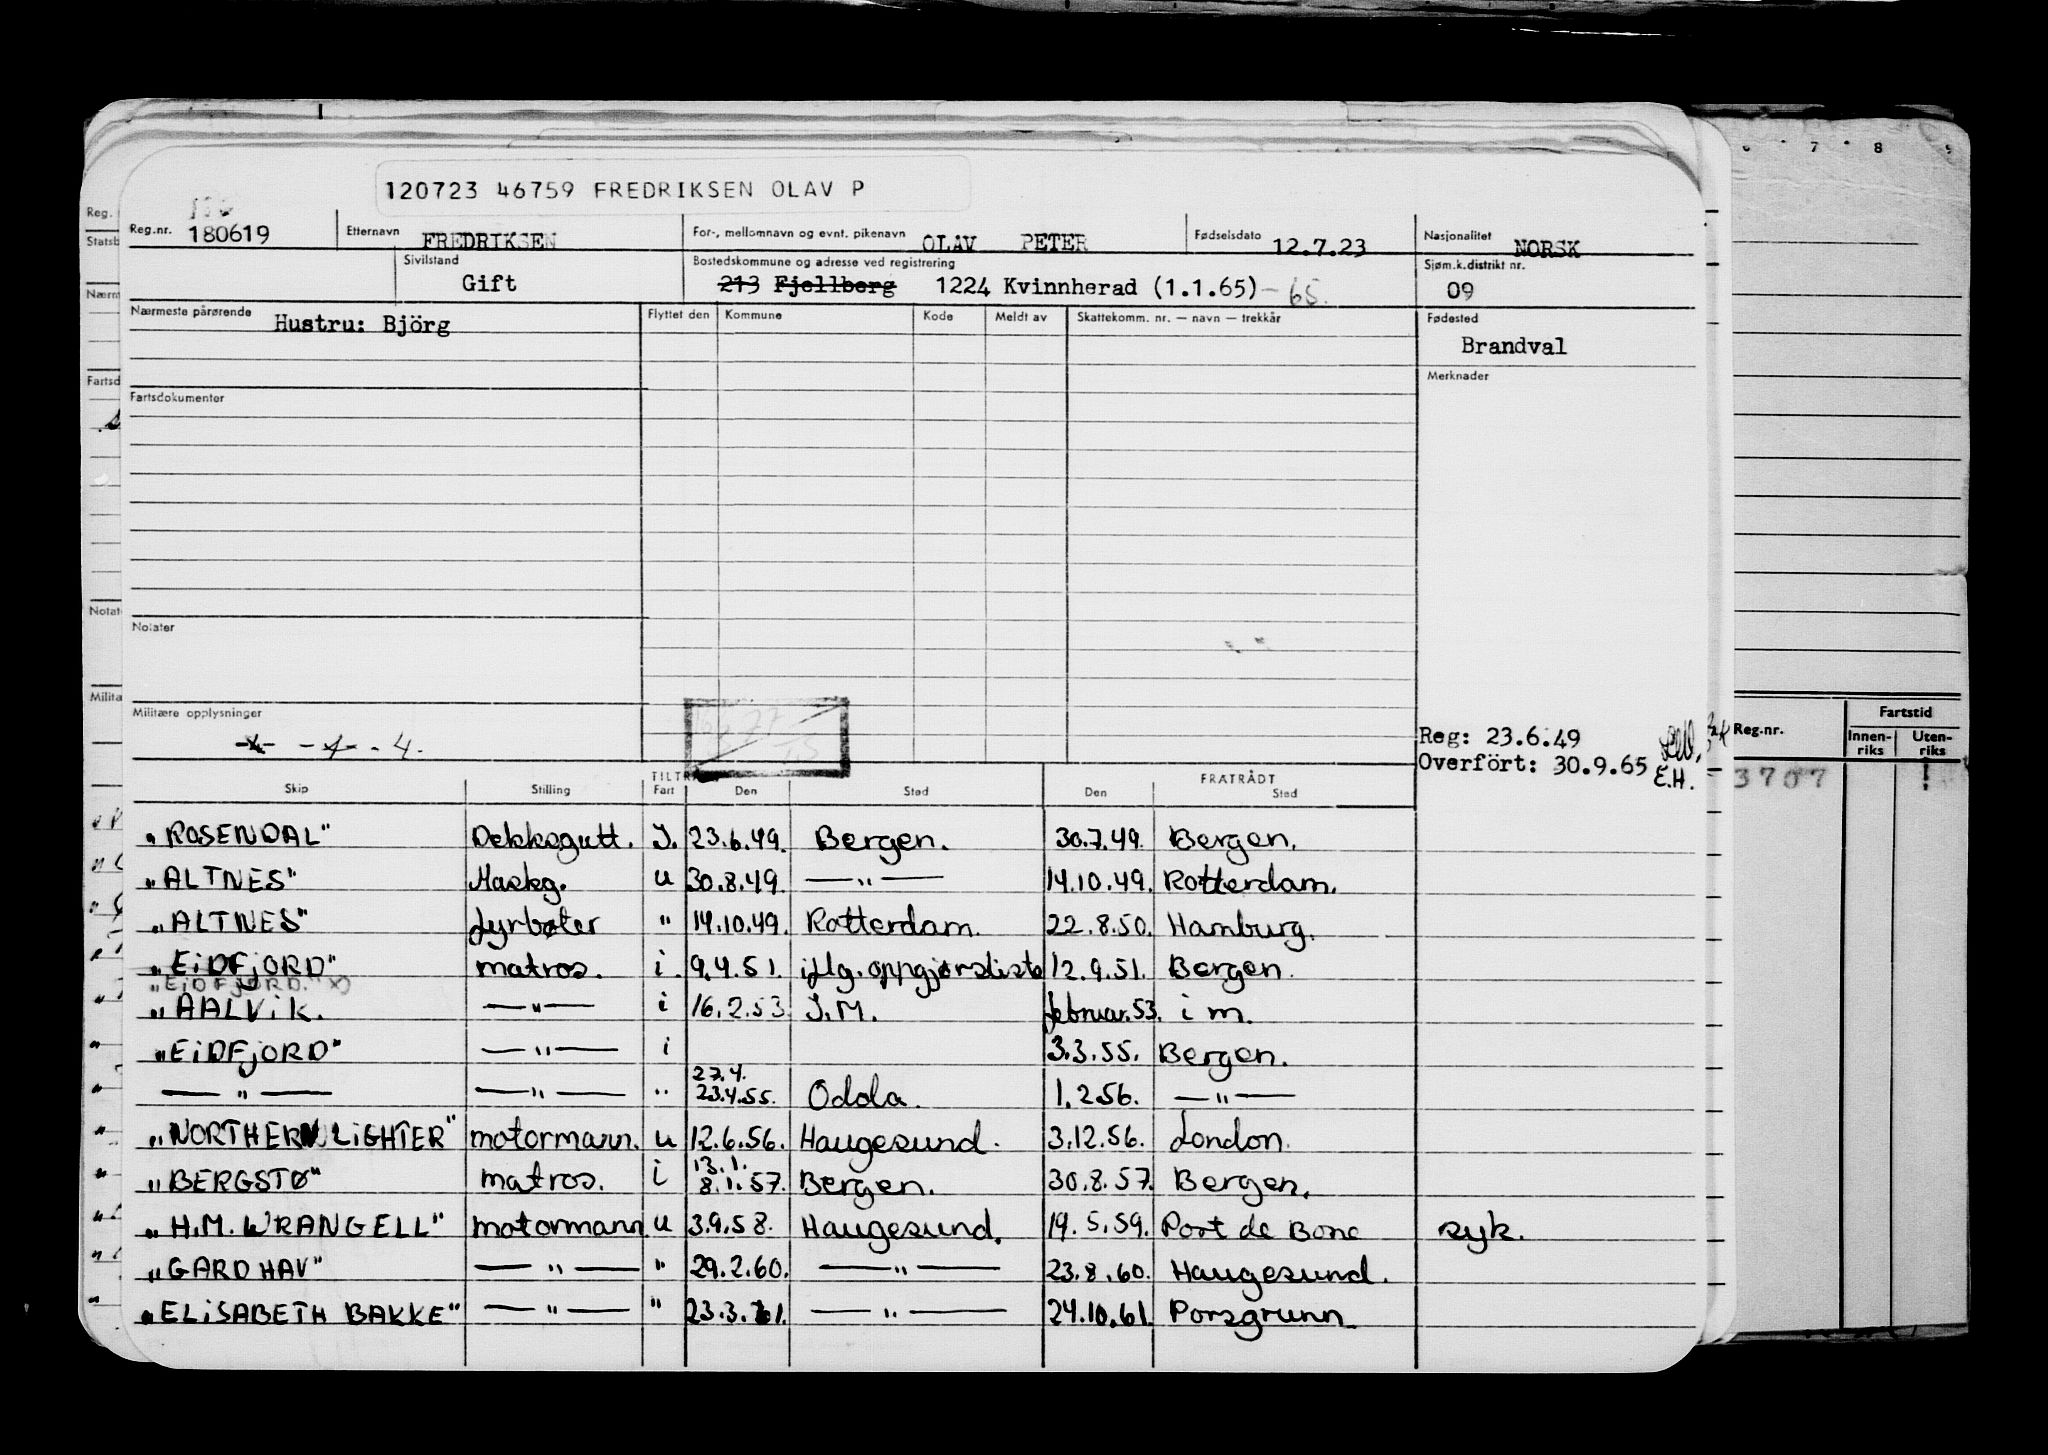 120723 46759 FREDRIKSEN OLAV P
Reg.nr. 180619 Etternavn FREDRIKSEN For-, mellomnavn og evnt. pikenavn OLAV PETER Fødselsdato 12.7.23 Nasjonalitet NORSK
Sivilstand Gift Bostedskommune og adresse ved registrering 213 Fjellberg 1224 Kvinnherad (1.1.65) - 65. Sjøm.k.distrikt nr. 09
Nærmeste pårørende Hustru: Björg Flyttet den Kommune Kode Meldt av Skattekomm. nr. — navn — trekkår Fødested Brandval
Merknader
Fartsdokumenter
Notater
Militære opplysninger
-4- -4- - 4.
Reg: 23.6.49
Overfört: 30.9.65 E.H.
Skip Stilling TILTR Fart Den Sted FRATRÅDT Den Sted
"ROSENDAL" Dekksgutt. I. 23.6.49. Bergen. 30.7.49. Bergen.
"ALTNES" Maskg. u 30.8.49. —"— 14.10.49. Rotterdam.
"ALTNES" fyrbøter " 14.10.49. Rotterdam. 22.8.50. Hamburg.
"EiDFjORD" matros. i. 9.4.51. iflg. oppgjørsliste 12.9.51. Bergen.
"EiDFjORD." x)
"AALViK. —"— i 16.2.53 I.M. februar.53. i m.
"EiDFjORD" —"— i 3.3.55. Bergen.
—"— —"— " 27.4. 23.4.55. Odda. 1.2.56. —"—
"NORTHERN LiGHTER" motormann. u 12.6.56. Haugesund. 3.12.56. London.
"BERGSTØ" matros. i 13.1. 8.1.57. Bergen. 30.8.57. Bergen.
"H.M. WRANGELL" motormann u 3.9.58. Haugesund. 19.5.59. Port de Bone syk.
"GARDHAV" —"— " 29.2.60. —"— 23.8.60. Haugesund.
"ELiSABETH BAKKE" —"— " 23.3.61. —"— 24.10.61. Porsgrunn
Reg.
Statsb
Nærm
Fartsd
Notat
Milita
6 7 8
Reg.nr. Fartstid
Innen-riks Uten-riks
3707